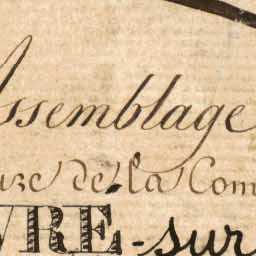 Assemblage
ure de la Com
VRÉ-sur